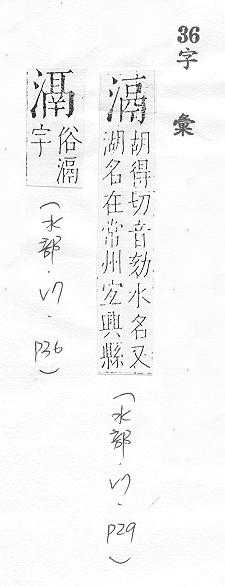 36字彙
滆
胡得切音劾水名又
湖名在常州宜興縣
（水部．P29）
俗滆
字
（水部．P36）